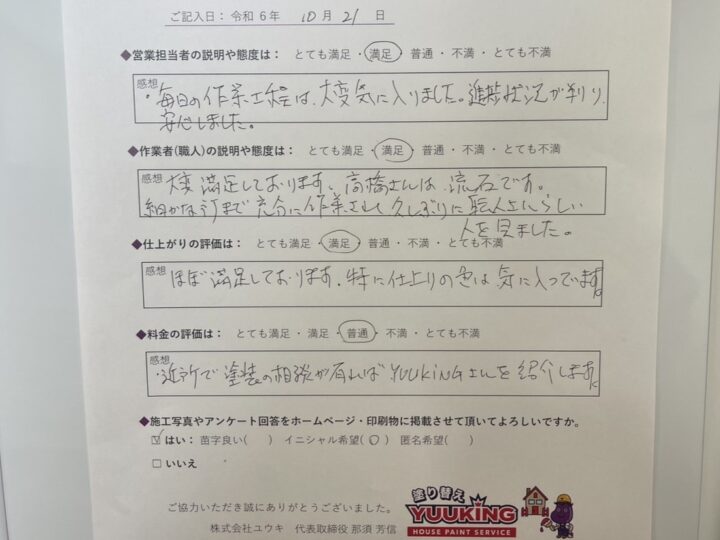 ご記入日：令和６年 10 月 21 日
◆営業担当者の説明や態度は： とても満足・満足・普通・不満・とても不満
感想
・毎日の作業工程は、大変気に入りました。進捗状況が判り、
安心しました。
◆作業者(職人)の説明や態度は： とても満足・満足・普通・不満・とても不満
感想
大変満足しております。高橋さんは流石です。
細かな所まで充分に作業されて久しぶりに職人さんらしい
人を見ました。
◆仕上がりの評価は： とても満足・満足・普通・不満・とても不満
感想
ほぼ満足しております。特に仕上りの色は気に入っています。
◆料金の評価は： とても満足・満足・普通・不満・とても不満
感想
・近所で塗装の相談が有ればYUUKINGさんを紹介します。
◆施工写真やアンケート回答をホームページ・印刷物に掲載させて頂いてよろしいですか。
☑はい：苗字良い(　) イニシャル希望(○) 匿名希望(　)
□いいえ
ご協力いただき誠にありがとうございました。
株式会社ユウキ 代表取締役 那須 芳信
塗り替え
YUUKING
HOUSE PAINT SERVICE